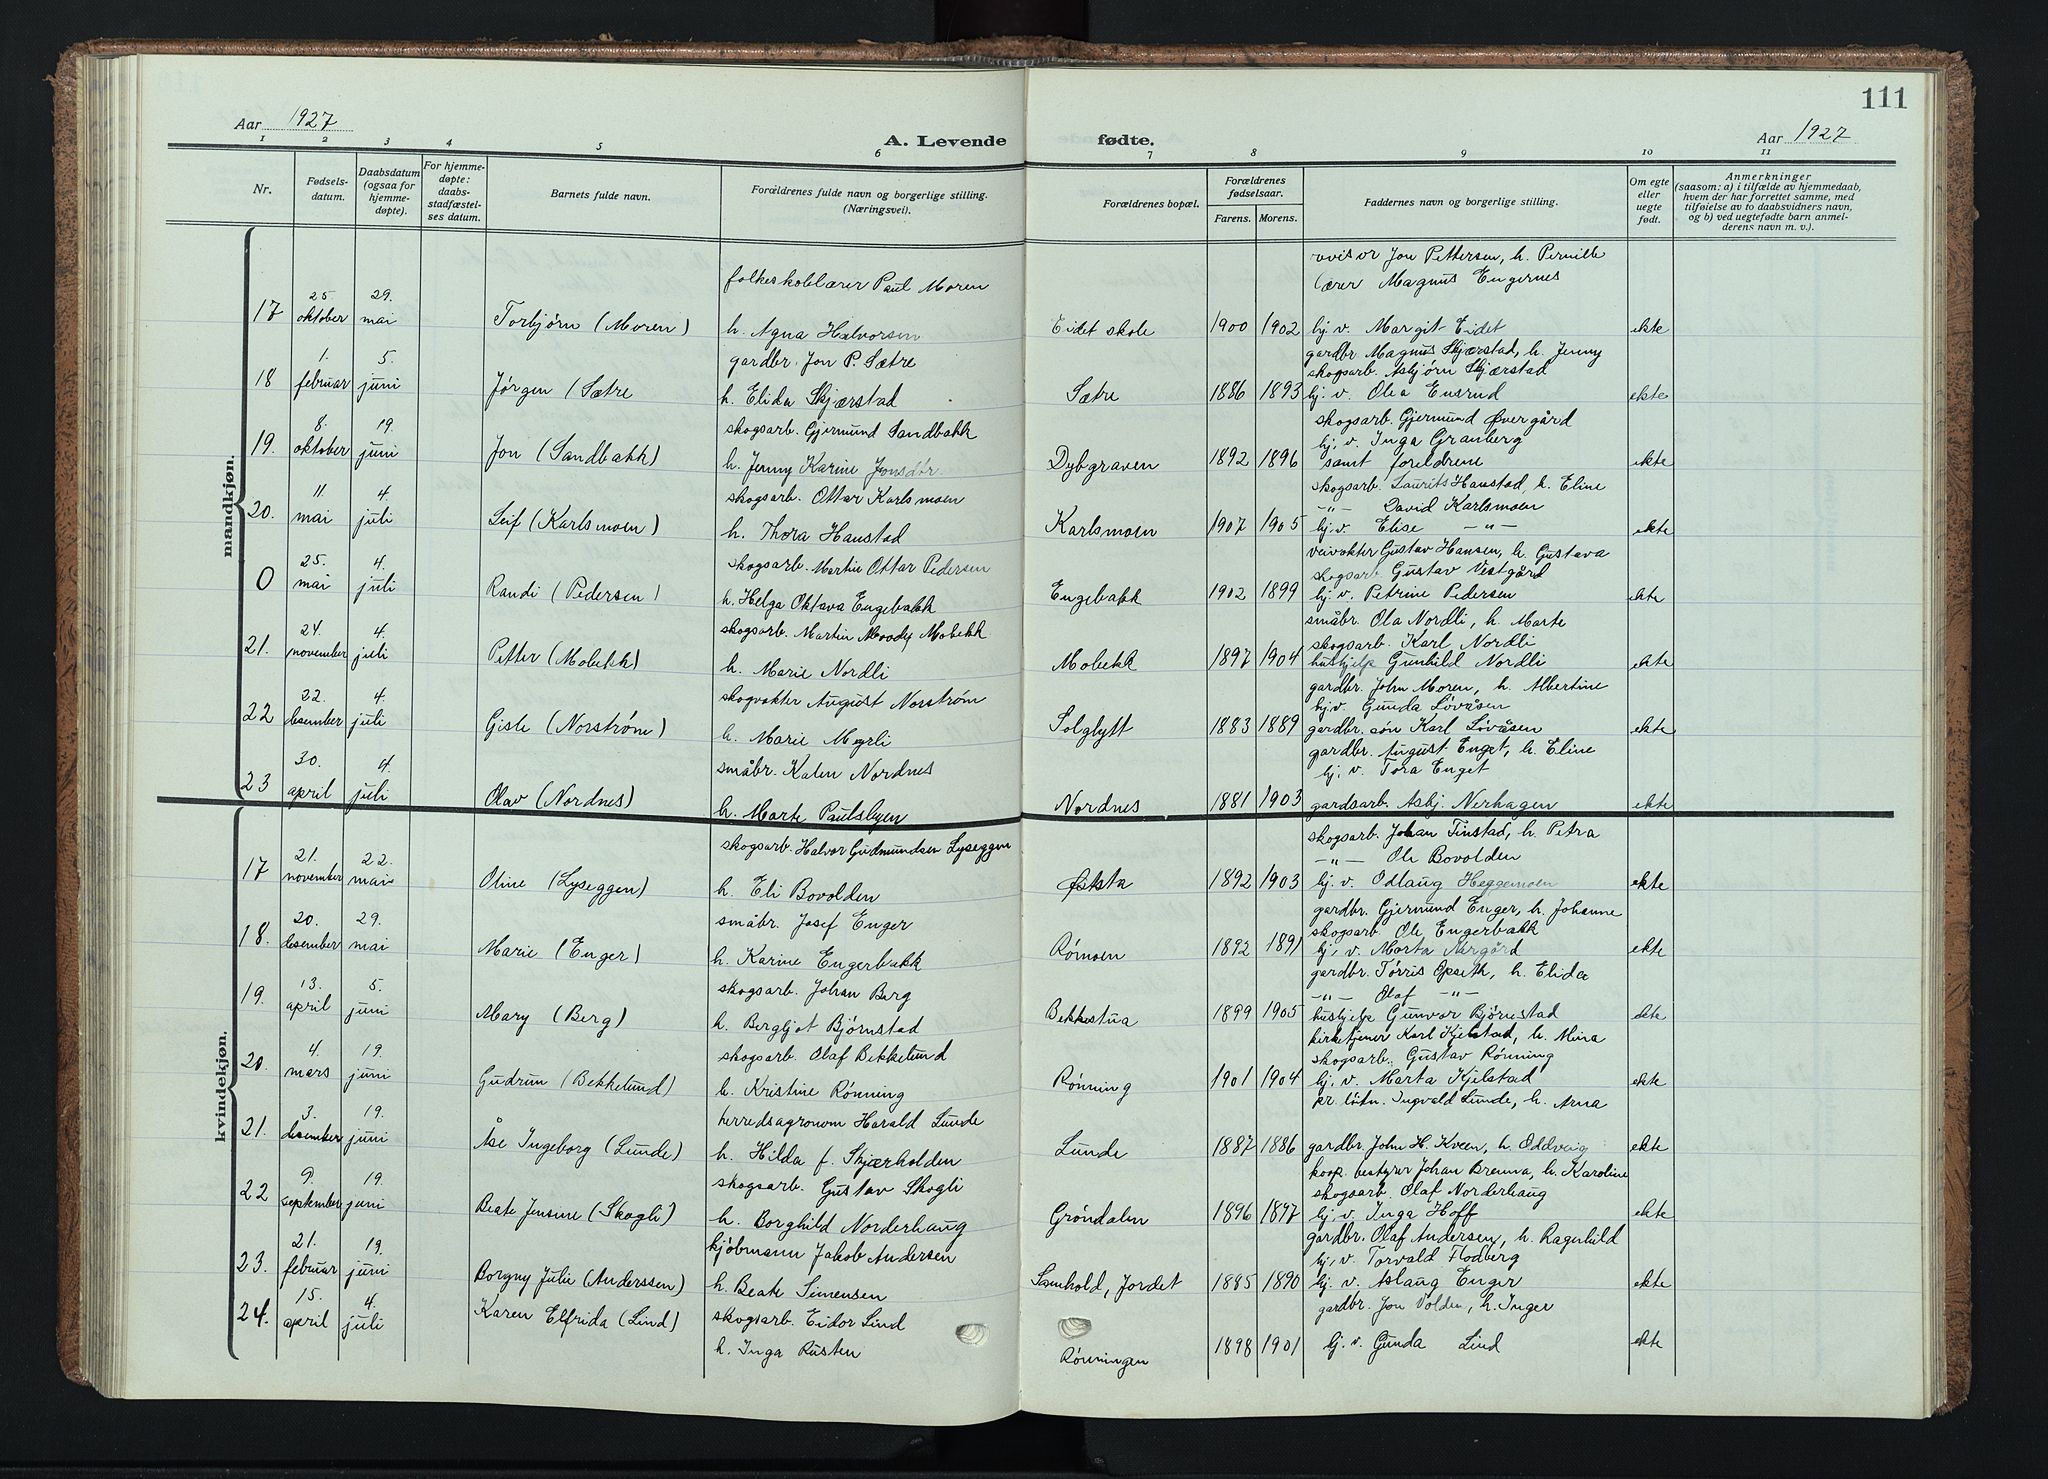 111
Aar 1927
A. Levende fødte.
Aar 1927
1 2 3 4 5 6 7 8 9 10 11
Nr. | Fødselsdatum. | Daabsdatum (ogsaa for hjemmedøpte). | For hjemmedøpte: daabsstadfæstelses datum. | Barnets fulde navn. | Forældrenes fulde navn og borgerlige stilling. (Næringsvei). | Forældrenes bopæl. | Forældrenes fødselsaar. Farens. Morens. | Faddernes navn og borgerlige stilling. | Om egte eller uegte født. | Anmerkninger (saasom: a) i tilfælde av hjemmedaab, hvem der har forrettet samme, med tilføielse av to daabsvidners navn, og b) ved uegtefødte barn anmelderens navn m. v.).
mandkjøn.
folkeskolelærer Paul Moren | Jon Pettersen, h. Pernille
lærer Magnus Engernes
17 | 25 oktober | 29. mai | Torbjørn (Moren) | h. Agna Halvorsen | Eidet skole | 1900 | 1902 | hj. v. Margit Eidet | ekte
gardbr. Jon P. Sætre | gardbr. Magnus Skjærstad, h. Jenny
skogsarb. Asbjørn Skjærstad
18 | 1. februar | 5. juni | Jørgen (Sætre | h. Elida Skjærstad | Sætre | 1886 | 1893 | hj. v. Olea Ensrud | ekte
skogsarb. Gjermund Sandbakk | skogsarb. Gjermund Øvergård
hj. v. Inga Granberg
19. | 8. oktober | 19. juni | Jon (Sandbakk) | h. Jenny Karine Jonsdtr. | Dybgraven | 1892 | 1896 | samt foreldrene | ekte
skogsarb. Ottar Karlsmoen | skogsarb. Laurits Hanstad, h. Eline
-"- David Karlsmoen
20. | 11. mai | 4. juli | Leif (Karlsmoen) | h. Thora Hanstad | Karlsmoen | 1907 | 1905 | hj. v. Elise -"- | ekte
skogsarb. Martin Ottar Pedersen | veivokter Gustav Hansen, h. Gustava
skogsarb. Gustav Vestgård
0 | 25. mai | 4. juli | Randi (Pedersen) | h. Helga Oktava Engebakk | Engebakk | 1902 | 1899 | hj. v. Petrine Pedersen | ekte
skogsarb. Martin Moody Mobekk | småbr. Ola Nordli, h. Marte
skogsarb. Karl Nordli
21. | 24. november | 4. juli | Petter (Mobekk) | h. Marie Nordli | Mobekk | 1897 | 1904 | hushjelp Gunhild Nordli | ekte
skogvokter August Norstrøm | gardbr. John Moren, h. Albertine
hj. v. Gunda Løvåsen
22 | 22. desember | 4. juli | Gisle (Norstrøm) | h. Marie Myrli | Solglytt | 1883 | 1889 | gardbr. søn Karl Løvåsen | ekte
småbr. Kalen Nordnes | gardbr. August Enget, h. Eline
hj. v. Tora Enget
23 | 30. april | 4. juli | Olav (Nordnes) | h. Marte Paulshgen | Nordnes | 1881 | 1903 | gardsarb. Asbj. Nerhagen | ekte
kvindekjøn.
skogsarb. Halvor Gudmundsen Lyseggen | skogsarb. Johan Finstad, h. Petra
-"- Ole Bovolden
17 | 21. november | 22. mai | Oline (Lyseggen) | h. Eli Bovolden | Øksta | 1892 | 1903 | hj. v. Odlaug Heggemoen | ekte
småbr. Josef Enger | gardbr. Gjermund Enger, h. Johanne
skogsarb. Ole Engerbakk
18. | 20. desember | 29. mai | Marie (Enger) | h. Karine Engerbakk | Rømoen | 1892 | 1891 | hj. v. Marta Nergård | ekte
skogsarb. Johan Berg | gardbr. Tørris Opseth, h. Elida
-"- Olaf -"-
19. | 13. april | 5. juni | Mary (Berg) | h. Bergljot Bjørnstad | Bekkestua | 1899 | 1905 | hushjelp Gunvor Bjørnstad | ekte
skogsarb. Olaf Bekkelund | kirketjener Karl Kjelstad, h. Mina
skogsarb. Gustav Rønning
20. | 4. mars | 19. juni | Gudrun (Bekkelund) | h. Kristine Rønning | Rønning | 1901 | 1904 | hj. v. Marta Kjelstad | ekte
herredsagronom Harald Lunde | pr. løitn. Ingvald Lunde, h. Arna
21. | 3. desember | 19. juni | Åse Ingeborg (Lunde) | h. Hilda f. Skjærholden | Lunde | 1887 | 1886 | gardbr. John H. Kveen, h. Oddveig | ekte
skogsarb. Gustav Skogli | koop. bestyrer Johan Brenna, h. Karoline
skogsarb. Olaf Norderhaug
22 | 9. september | 19. juni | Beate Jensine (Skogli) | h. Borghild Norderhaug | Grøndalen | 1896 | 1897 | hj. v. Inga Hoff | ekte
kjøbmann Jakob Andersen | gardbr. Olaf Andersen, h. Ragnhild
hj. v. Torvald Flodberg
23. | 21. februar | 19. juni | Borgny Julie (Anderssen) | h. Beate Simensen | Samhold, Jordet | 1885 | 1890 | hj. v. Aslaug Enger | ekte
24. | 15. april | 4. juli | Karen Elfrida (Lind) | skogsarb. Eidor Lind | gardbr. Jon Volden, h. Inger
h. Inga Rusten | Rønningen | 1898 | 1901 | hj. v. Gunda Lind | ekte